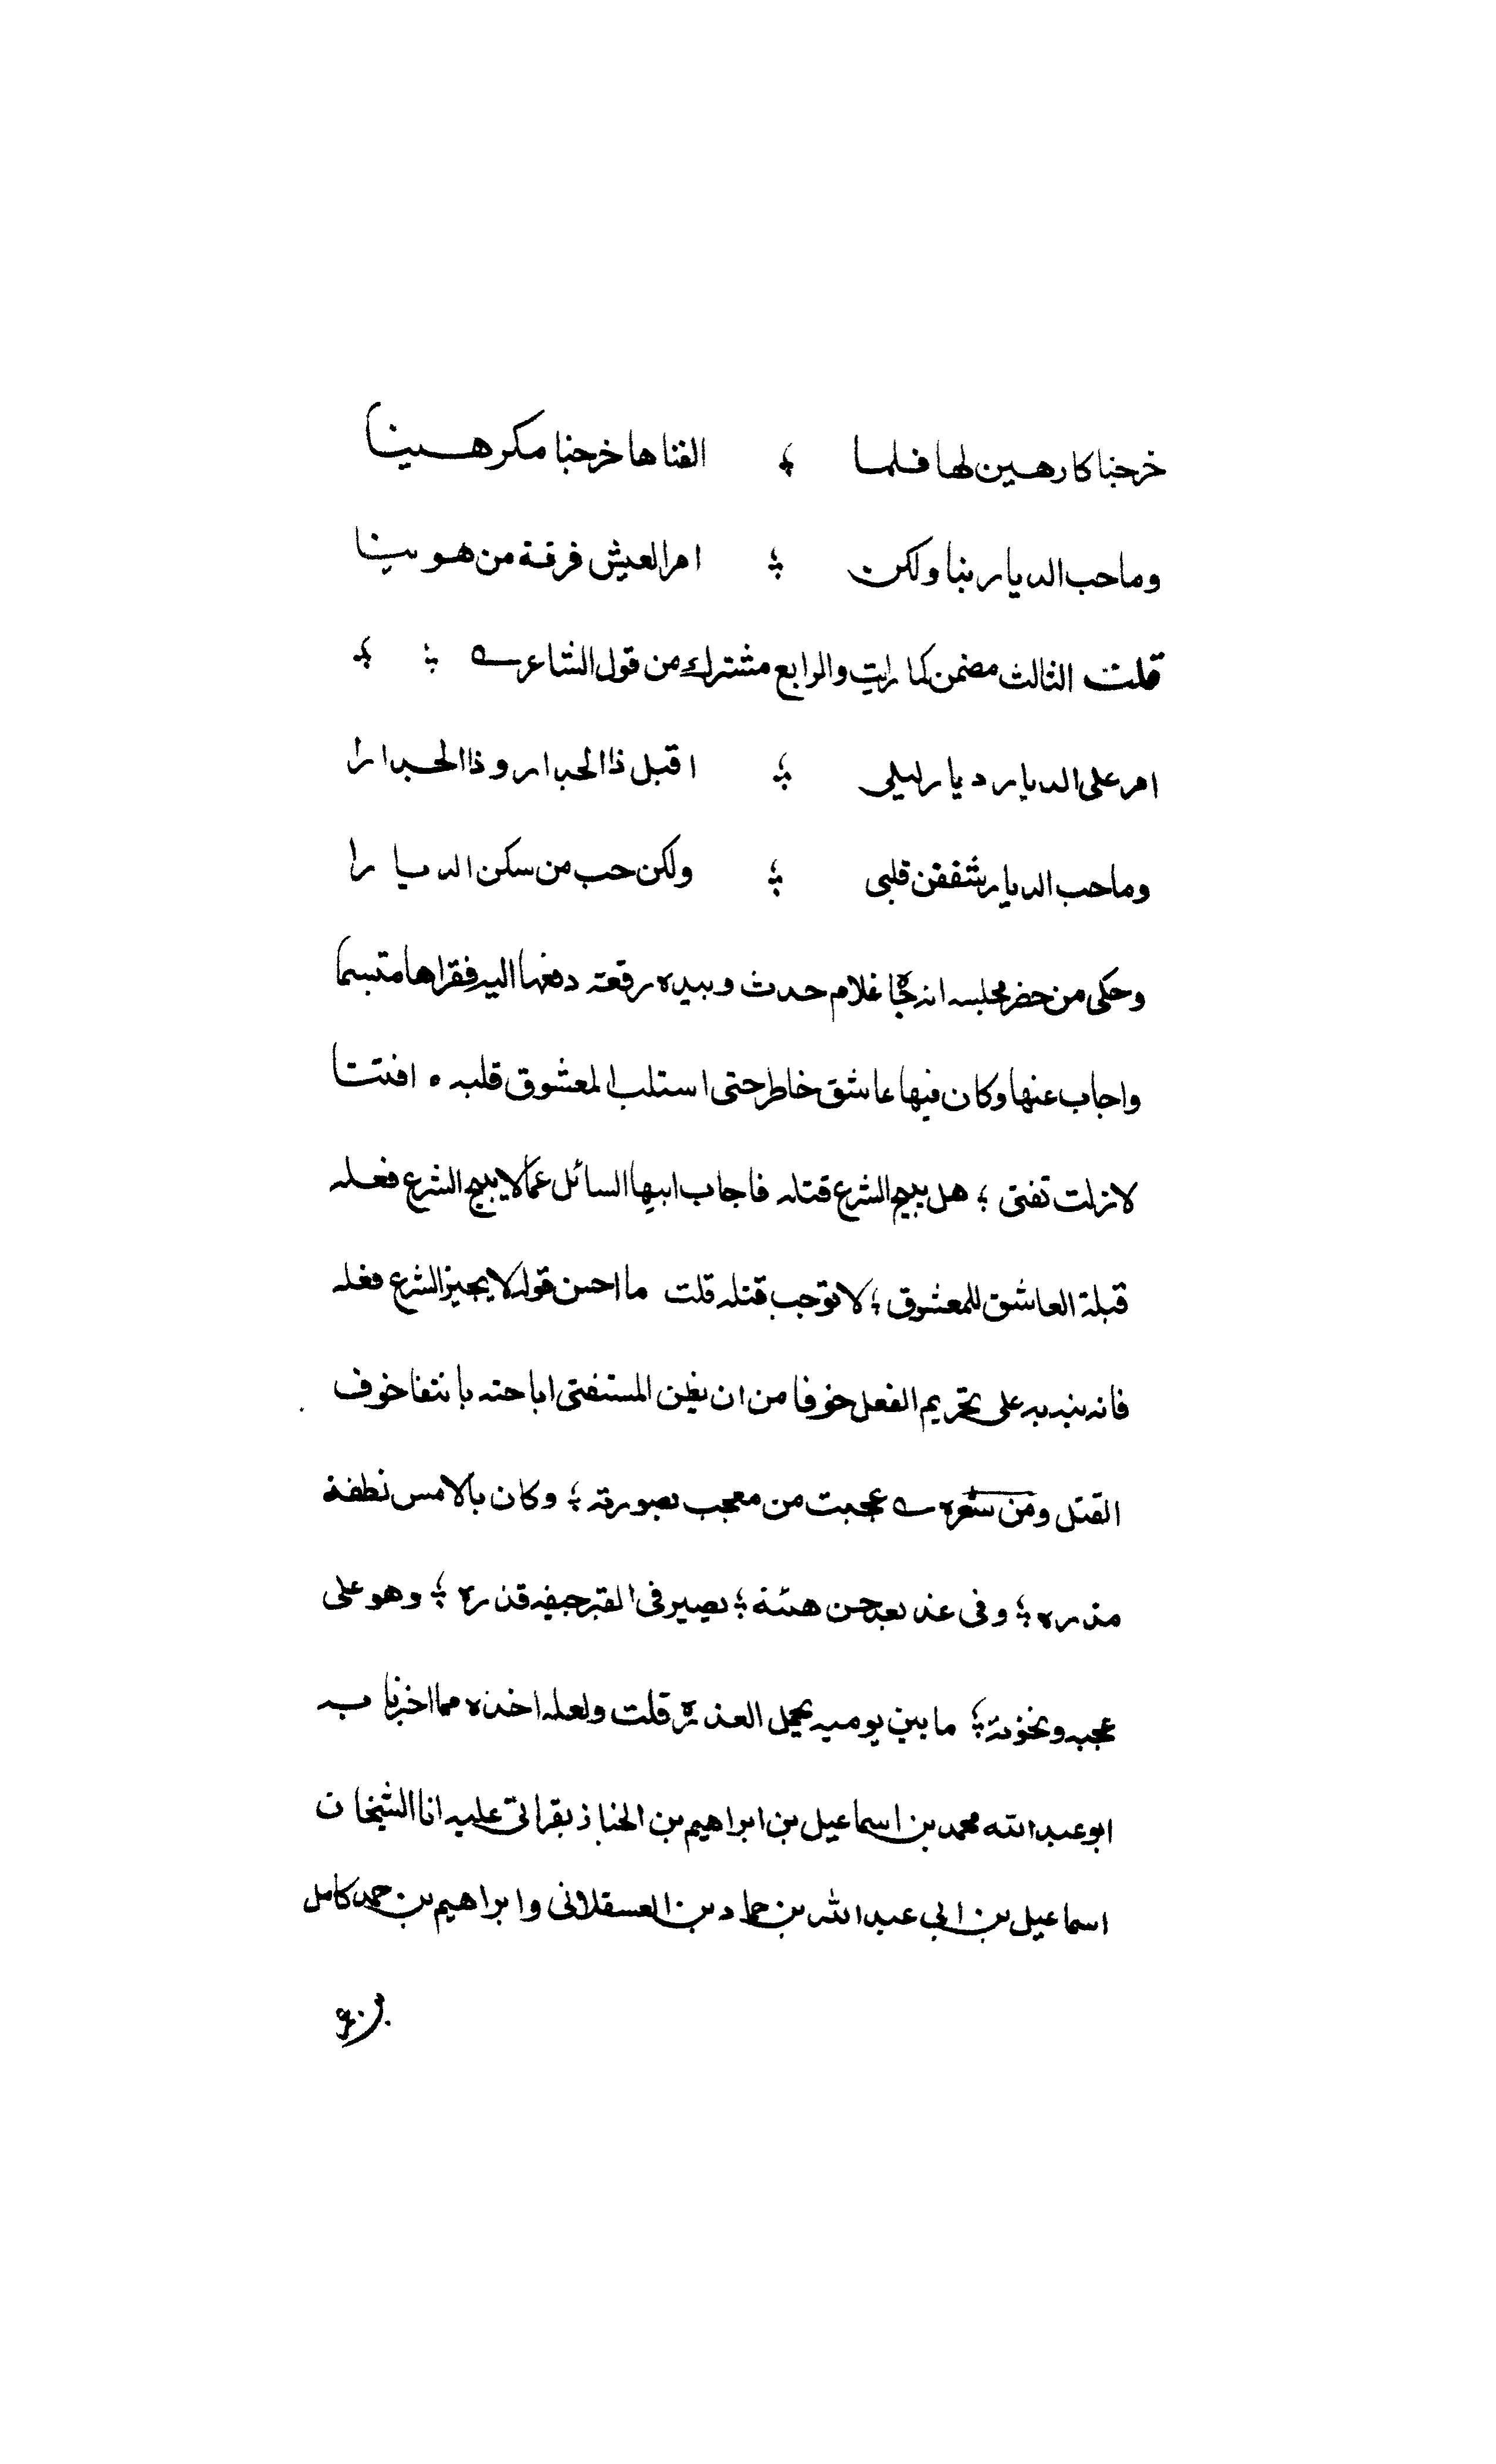 خرجنا كارهين لها فلما ؛ الفناها خرجنا مكرهينا
وما حب الديار بنا ولكن ؛ امر العيش فرقة من هوينا
قلت الثالث مضمن كما رايت والرابع مشترك من قول الشاعر ؛ ؛
امر على الديار ديار ليلى ؛ اقبل ذا الجدار وذا الجدارا
وما حب الديار شففن قلبى ؛ ولكن حب من سكن الديارا
وحكى من حضر مجلسه انه جاءه غلام حدث وبيده رقعة دفعها اليه فقراها متبسما
واجاب عنها وكان فيها عاشق خاطر حتى استلب المعشوق قلبه ه افتنا
لا زلت تفتى ؛ هل يبيح الشرع قتله فاجاب ايها السائل عما لا يبيح الشرع فعله
قبلة العاشق للمعشوق ؛ لا توجب قتله قلت ما احسن قوله لا يجيز الشرع فعله
فانه ينبه به على تحريم الفعل خوفا من ان يظن المستفتى اباحته بانتفا خوف
القتل ومن شعره عجبت من معجب بصورته ؛ وكان بالامس نطفة
مذره ؛ وفى غد بعد حسن هيئة ؛ يصير فى القبر جيفه قذره ؛ وهو على
عجبه ونخوته ؛ ما بين يوميه يحمل العذره قلت ولعله اخذه مما اخبرنا به
ابو عبد الله محمد بن اسماعيل بن ابراهيم بن الخباز بقراتى عليه انا الشيخان
اسماعيل بن ابى عبد الله بن حماد بن العسقلانى وابراهيم بن حمد كامل